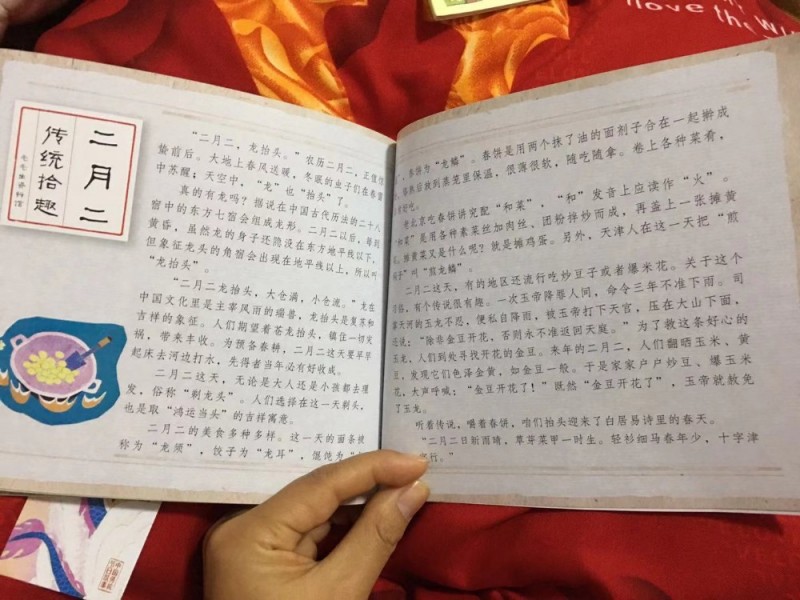 love the wi
二月二
传统拾趣
毛毛虫资料馆
“二月二，龙抬头。”农历二月二，正值惊
蛰前后。大地上春风送暖，冬眠的虫子们在春雷
中苏醒；天空中，“龙”也“抬头”了。
真的有龙吗？据说在中国古代历法的二十八
宿中的东方七宿会组成龙形。二月二以后，每到
黄昏，虽然龙的身子还隐没在东方地平线以下，
但象征龙头的角宿会出现在地平线以上，所以叫
“龙抬头”。
“二月二龙抬头，大仓满，小仓流。”龙在
中国文化里是主宰风雨的瑞兽，龙抬头是复苏和
吉祥的象征。人们期望着苍龙抬头，镇住一切灾
祸，带来丰收。为预备春耕，二月二这天要早早
起床去河边打水，先得者当年必有好收成。
二月二这天，无论是大人还是小孩都去理
发，俗称“剃龙头”。人们选择在这一天剃头，
也是取“鸿运当头”的吉祥寓意。
二月二的美食多种多样。这一天的面条被
称为“龙须”，饺子为“龙耳”，馄饨为
，春饼为“龙鳞”。春饼是用两个抹了油的面剂子合在一起擀成
，烙熟后放到蒸笼里保温，很薄很软，随吃随拿。卷上各种菜肴，
好吃。
老北京吃春饼讲究配“和菜”，“和”发音上应读作“火”。
“和菜”是用各种素菜丝加肉丝、团粉拌炒而成，再盖上一张摊黄
菜。摊黄菜又是什么呢？就是摊鸡蛋。另外，天津人在这一天把“煎
子”叫“煎龙鳞”。
二月二这天，有的地区还流行吃炒豆子或者爆米花。关于这个
习俗，有个传说很有趣。一次玉帝降罪人间，命令三年不准下雨。司
掌天河的玉龙不忍，便私自降雨，被玉帝打下天宫，压在大山下面，
还说：“除非金豆开花，否则永不准返回天庭。”为了救这条好心的
玉龙，人们到处寻找开花的金豆。来年的二月二，人们翻晒玉米、黄
豆，发现它们色泽金黄，如金豆一般。于是家家户户炒豆、爆玉米
花，大声呼喊：“金豆开花了！”既然“金豆开花了”，玉帝就赦免
了玉龙。
听着传说，嚼着春饼，咱们抬头迎来了白居易诗里的春天。
“二月二日新雨晴，草芽菜甲一时生。轻衫细马春年少，十字津
行。”